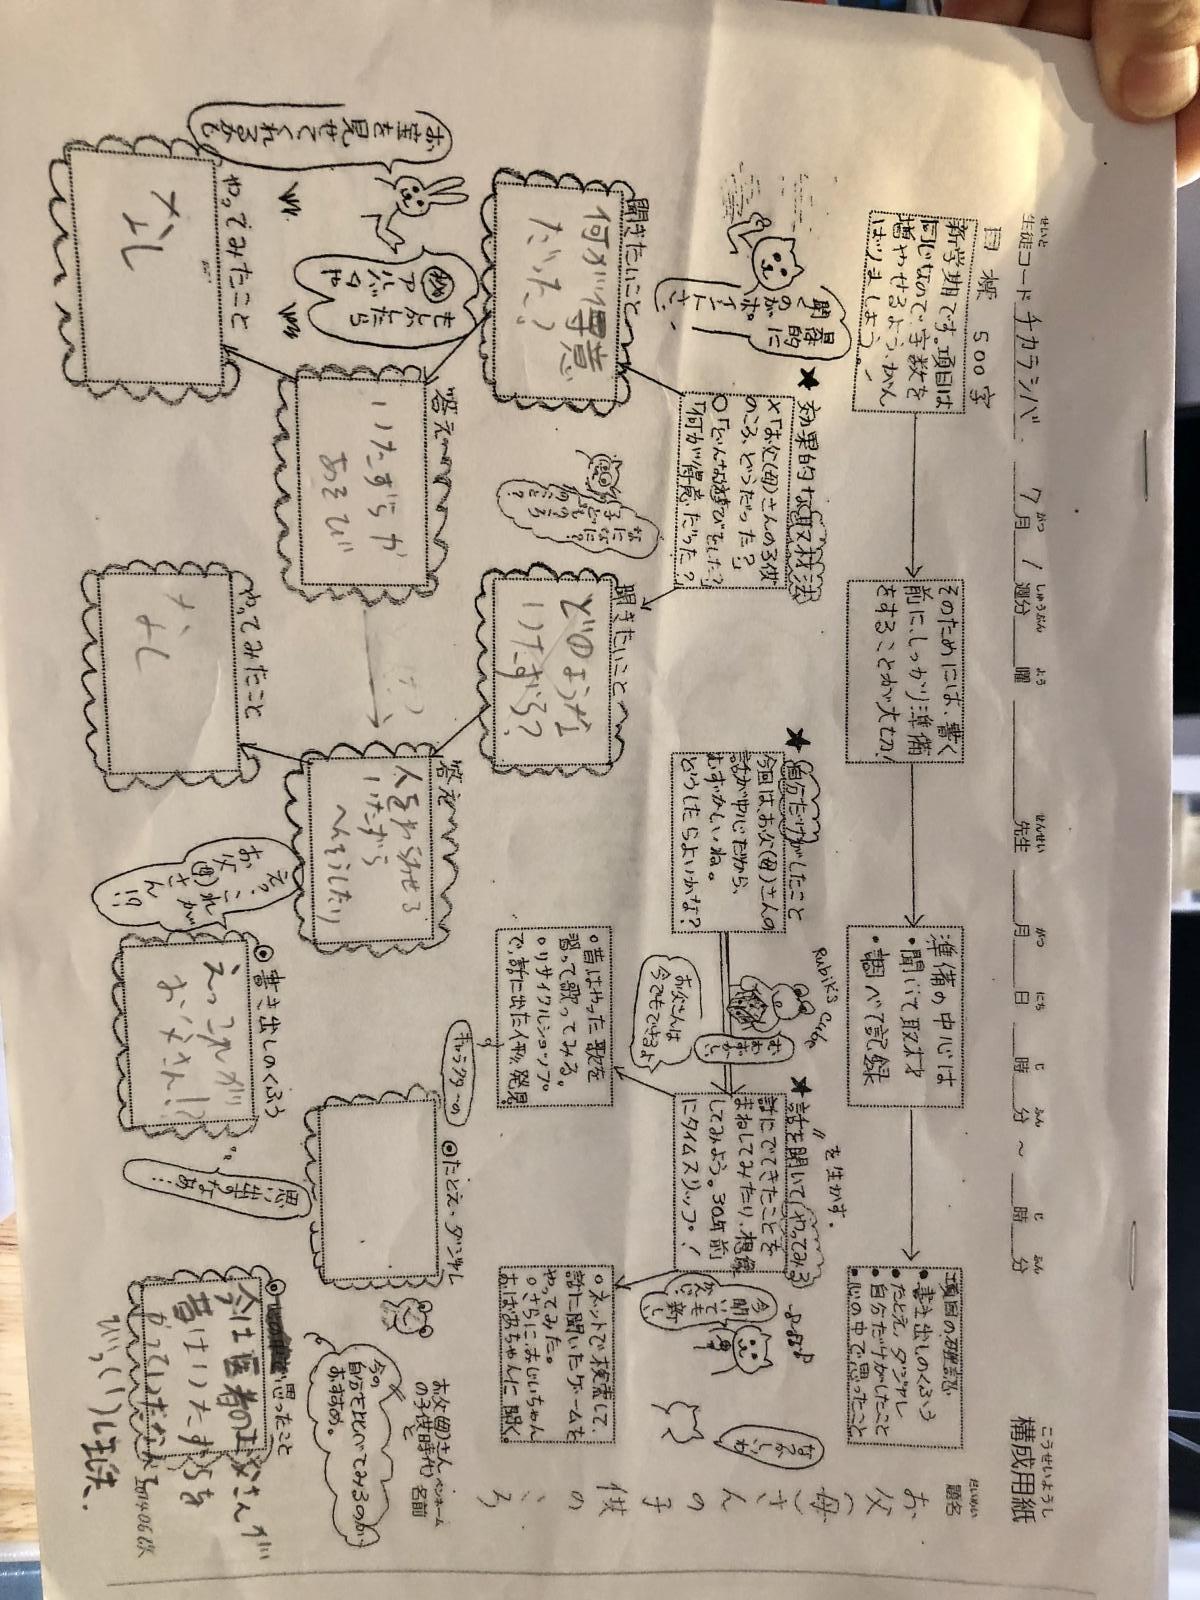 構成用紙
こうせいようし
せいと
生徒コード チカラシバ 7月 1週分 曜 先生 月 日 時 分 ~ 時 分
だいめい
題名
お父(母)さんの子供のころ
ペンネーム
名前
目標 500字
新学期です。項目は
同じなので、字数を
増やせるよう、がん
ばりましょう!
そのためには、書く
前に、しっかり準備
をすることが大切!
準備の中心は
・聞いて取材
・調べて記録
項目の確認
・書き出しのくふう
・たとえ、ダジャレ
・自分だけがしたこと
・心の中で思ったこと
★効果的な取材法
×「お父(母)さんの子供
のころ、どうだった?」
○「どんな遊びをした?」
「何が得意だった?」
具体的に
聞く
のが
ポイント
さ!
なになに?
★自分だけがしたこと
今回は、お父(母)さんの
話が中心だから、
むずかしいね。
どうしたらよいかな?
Rubik's Cube
むずかしい
お父さんは
今でもできるよ
★話を聞いて(やってみる)
〃を生かす。
話にでてきたことを
まねしてみたり、想像
してみよう。30年前
にタイムスリップ!
・昔はやった歌を
習って歌ってみる。
・リサイクルショップ
で、話に出た
発見。
・ネットで検索して、
話に聞いたゲームを
やってみた。
・さらに、おじいちゃん
おばあちゃんに聞く。
聞きたいこと
何が得意
だった?
答え
いたずらが
あそび
やってみたこと
なし
聞きたいこと
どのような
いたずら?
答え
人をわらわせる
いたずら
へんそうしたり
やってみたこと
なし
もしかしたら
アルバムや
お宝を見せてくれるかも
◎書き出しのくふう
えっこれが
お父さん!?
えっ、これが
お父(母)さん!?
◎たとえ・ダジャレ
思い出すなあ…
◎思ったこと
今は医者のお父さんが
昔はいたずらを
がっていたなんて
びっくりしました。
お父(母)さんと
の子供時代
今の
自分と比べてみるのが
おすすめ。